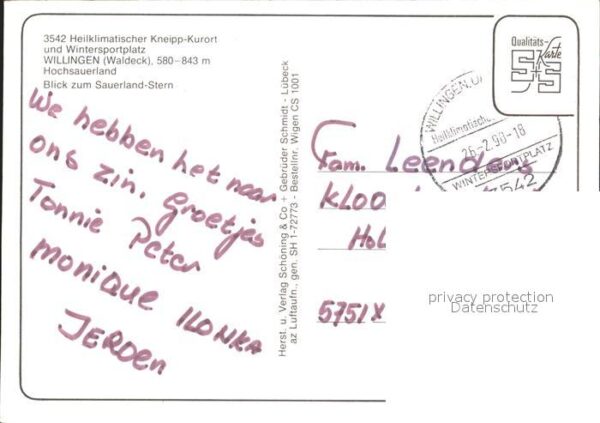 3542 Heilklimatischer Kneipp-Kurort
und Wintersportplatz
WILLINGEN (Waldeck), 580–843 m
Hochsauerland
Blick zum Sauerland-Stern
We hebben het naar
ons zin. Groetjes
Tonnie Peter
Monique Ilonka
Jeroen
Herst. u. Verlag Schöning & Co + Gebrüder Schmidt - Lübeck
az Luftaufn., gen. SH 1-72773 - Bestellnr. Wigen CS 1001
Qualitäts-
Karte
S+S
WILLINGEN, U
Heilklimatische
26.-2.90-18
WINTERSPORTPLATZ
3542
Fam. Leenders
KLOO
Hol
5751 X
privacy protection
Datenschutz